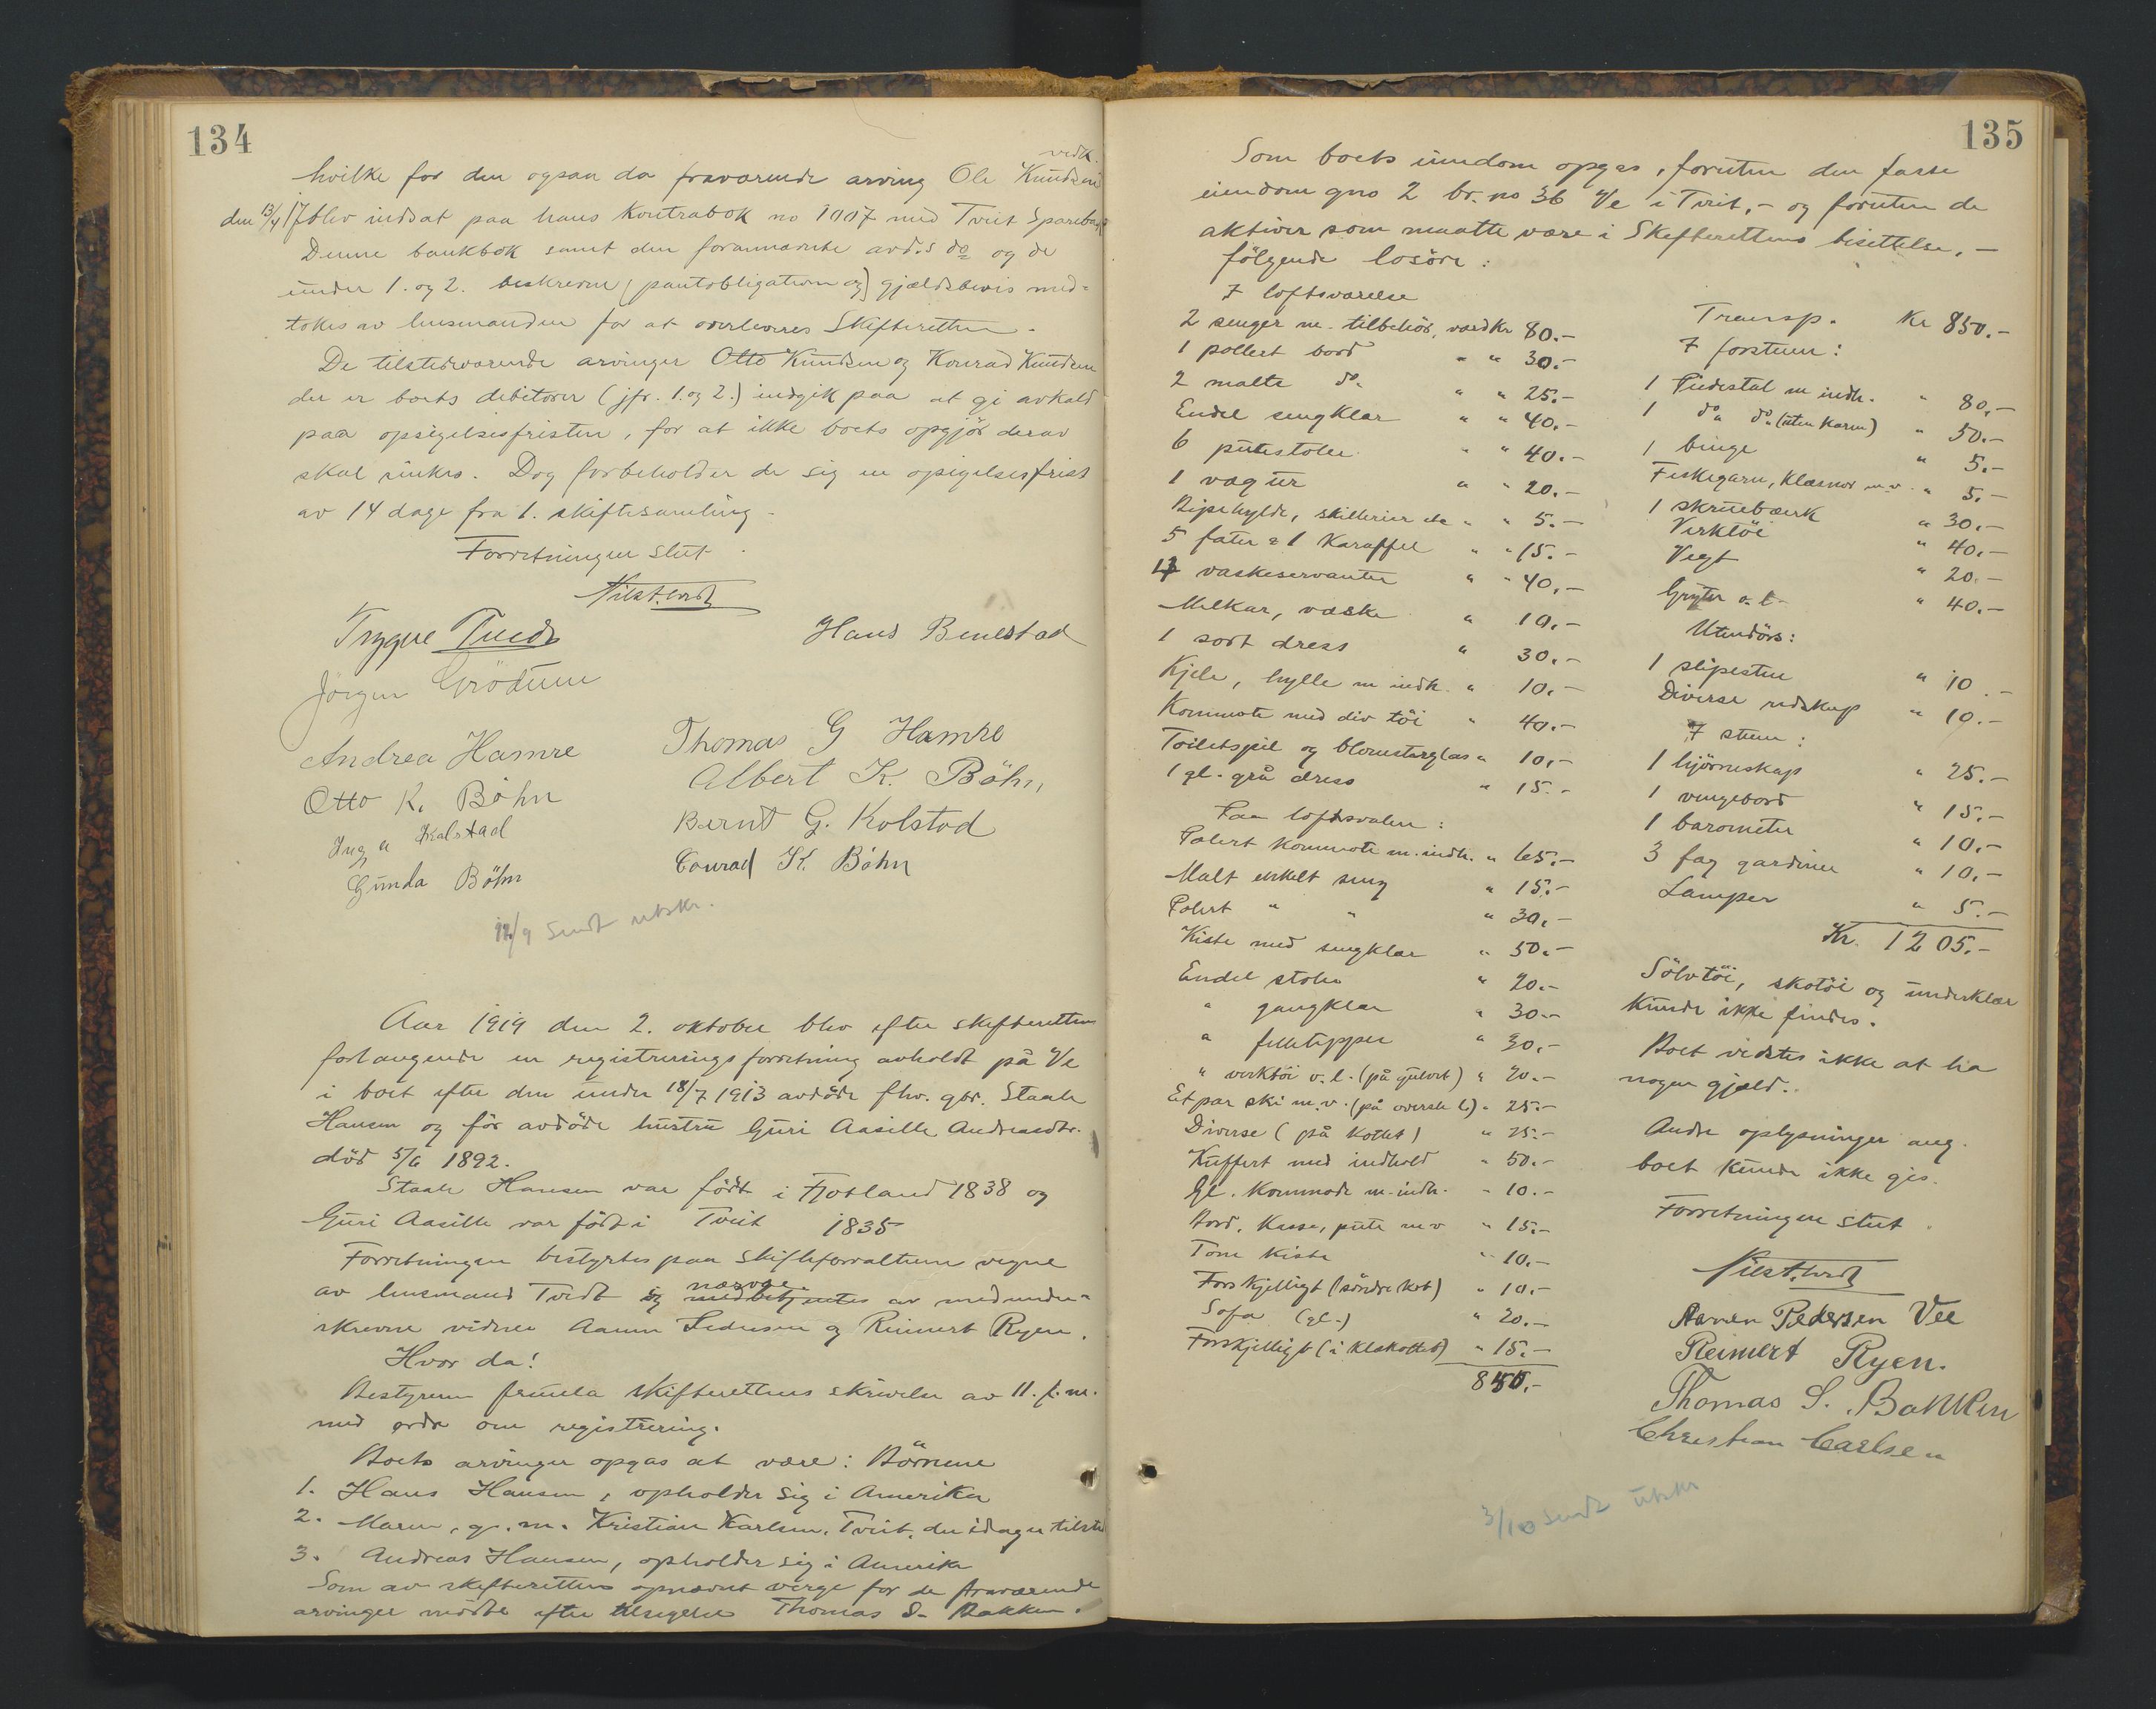 134
vedk.
hvilke for den ogsaa da fraværende arving Ole Knudsen
den 13/4 17 blev indsat paa hans Kontrabok no 1007 med Tveit Sparebank
Denne bankbok samt den forannævnte avd.s do og de
under 1. og 2. beskrevne (pantobligation og) gjældsbevis med-
tokes av lensmanden for at overleveres Skifteretten.
De tilstedeværende arvinger Otto Knudsen og Konrad Knudsen
der er boets debitorer (jfr. 1. og 2.) indgik paa at gi avkald
paa opsigelsesfristen, for at ikke boets opgjör derav
skal sinkes. Dog forbeholder de sig en opsigelsesfrist
av 14 dage fra 1. skiftesamling.
Forretningen slut.
Trygve Tveidt
Hans Benestad
Jörgen Grödum
Andrea Hamre
Thomas G Hamre
Otto K. Böhn
Albert K. Böhn,
Inga Kolstad
Bernt G. Kolstad
Gunda Böhn
Conrad K. Böhn
12/9 Sendt utskr.
Aar 1919 den 2. oktober blev efter skifterettens
forlangende en registreringsforretning avholdt på Ve
i boet efter den under 18/7 1913 avdöde fhv. gbr. Staale
Hansen og för avdöde hustru Guri Aasille Andreasdtr.
död 5/6 1892.
Staale Hansen var födt i Fjotland 1838 og
Guri Aasille var född i Tveit 1835
Forretningen bestyrtes paa skifteforvalterens vegne
av lensmand Tvedt i nærvær av medunder-
skrevne vidner Aanen Pedersen og Reinert Ryen.
Hvor da!
Bestyreren fremla skifterettens skrivelse av 11. f.m.
med ordre om registrering.
Boets arvinger opgas at være: Börnene
1. Hans Hansen, opholder sig i Amerika
2. Maren, g. m. Kristian Karlsen, Tveit, der idag er tilsted
3. Andreas Hansen, opholder sig i Amerika
Som av skifteretten opnævnt verge for de fraværende
arvinger mödte efter tilsigelse Thomas S. Bakken.
135
Som boets eiendom opgas, foruten den faste
eiendom gno 2 br. no 36 Ve i Tveit, - og foruten de
aktiver som maatte være i Skifterettens besittelse, -
fölgende lösöre:
I loftsværelse
2 senger m. tilbehör, værd Kr 80.-
1 pollert bord " " 30.-
2 malte do. " " 25.-
Endel sengklær " " 40.-
6 pútestoler " " 40.-
1 vægur " " 20.-
Bipehylde, skillerier etc " " 5.-
5 fater & 1 Karaffel " " 15.-
13 vaskeservanter " " 40,-
Melkar, væske " 10,-
1 sort dress " 30.-
Kjele, hylle m indh. " 10,-
Kommode med div töi " 40.-
Toiletspeil og blomsterglas " 10,-
1 gl. grå dress " 15.-
Paa loftsvalen:
Polert Kommode m. indh. " 65.-
Malt enkelt seng " 15.-
Polert " " " 30,-
Kiste med sengklær " 50.-
Endel stoler " 20.-
" gangklær " 30.-
" felletepper " 30,-
" verktöi o. l. (på gulvet) " 20.-
Et par ski m.v. (på överste l.) " 25.-
Diverse (på Kottet) " 25.-
Kuffert med indhold " 50.-
Gl. Kommode m. indh. " 10.-
Bord, Kasse, pute m v " 15.-
Tom Kiste " 10.-
Forskjelligt (söndre kot) " 10.-
Sofa (gl.) " 20.-
Forskjelligt (i kleskottet) " 15.-
850.-
Transp. Kr 850.-
I forstuen:
1 Piedestal m indh. " 80.-
1 do do (uten Karm) " 50.-
1 binge " 5.-
Fiskegarn, klæsnor m.v. " 5.-
1 skruebænk " 30.-
Verktöi " 40.-
Vegt " 20.-
Gryter o. l. " 40.-
Utendörs:
1 slipesten " 10.-
Diverse redskap " 10.-
I stuen:
1 hjörneskap " 25.-
1 vengebord " 15.-
1 barometer " 10.-
3 fag gardiner " 10.-
Lamper " 5.-
Kr. 1205.-
Sölvtöi, skotöi og underklær
kunde ikke findes.
Boet vidstes ikke at ha
nogen gjæld.
Andre oplysninger ang.
boet kunde ikke gis.
Forretningen slut.
Aanen Pedersen Vee
Reinert Ryen.
Thomas S. Bakken
Christian Carlsen
3/10 Sendt utskr